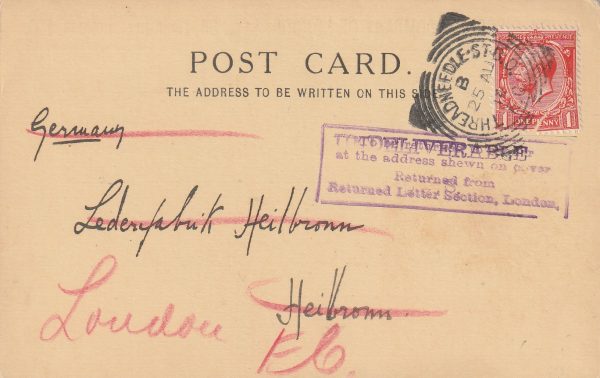 POST CARD.
THE ADDRESS TO BE WRITTEN ON THIS SIDE
THREADNEEDLE·ST·B.O
B
25 AU
PENNY
Germany
at the address shewn on cover
Returned from
Returned Letter Section, London,
Lederfabrik Heilbronn
Heilbronn.
London
E.C.